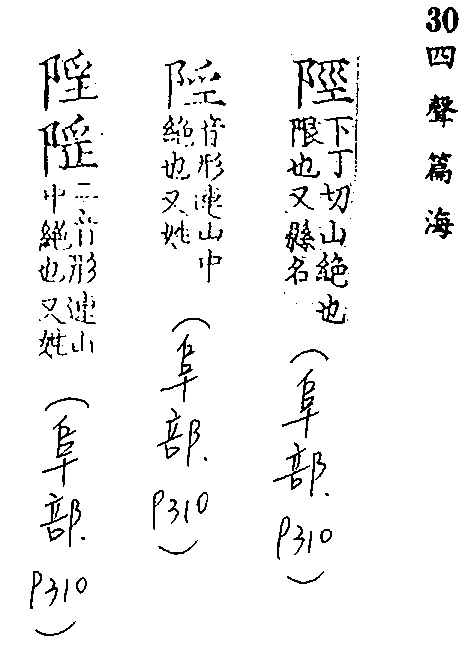 30 四聲篇海
陘 下丁切山絕也
限也又縣名
(阜部. P310)
音形連山中
絕也又姓
(阜部. P310)
二音形連山
中絕也又姓
(阜部. P310)